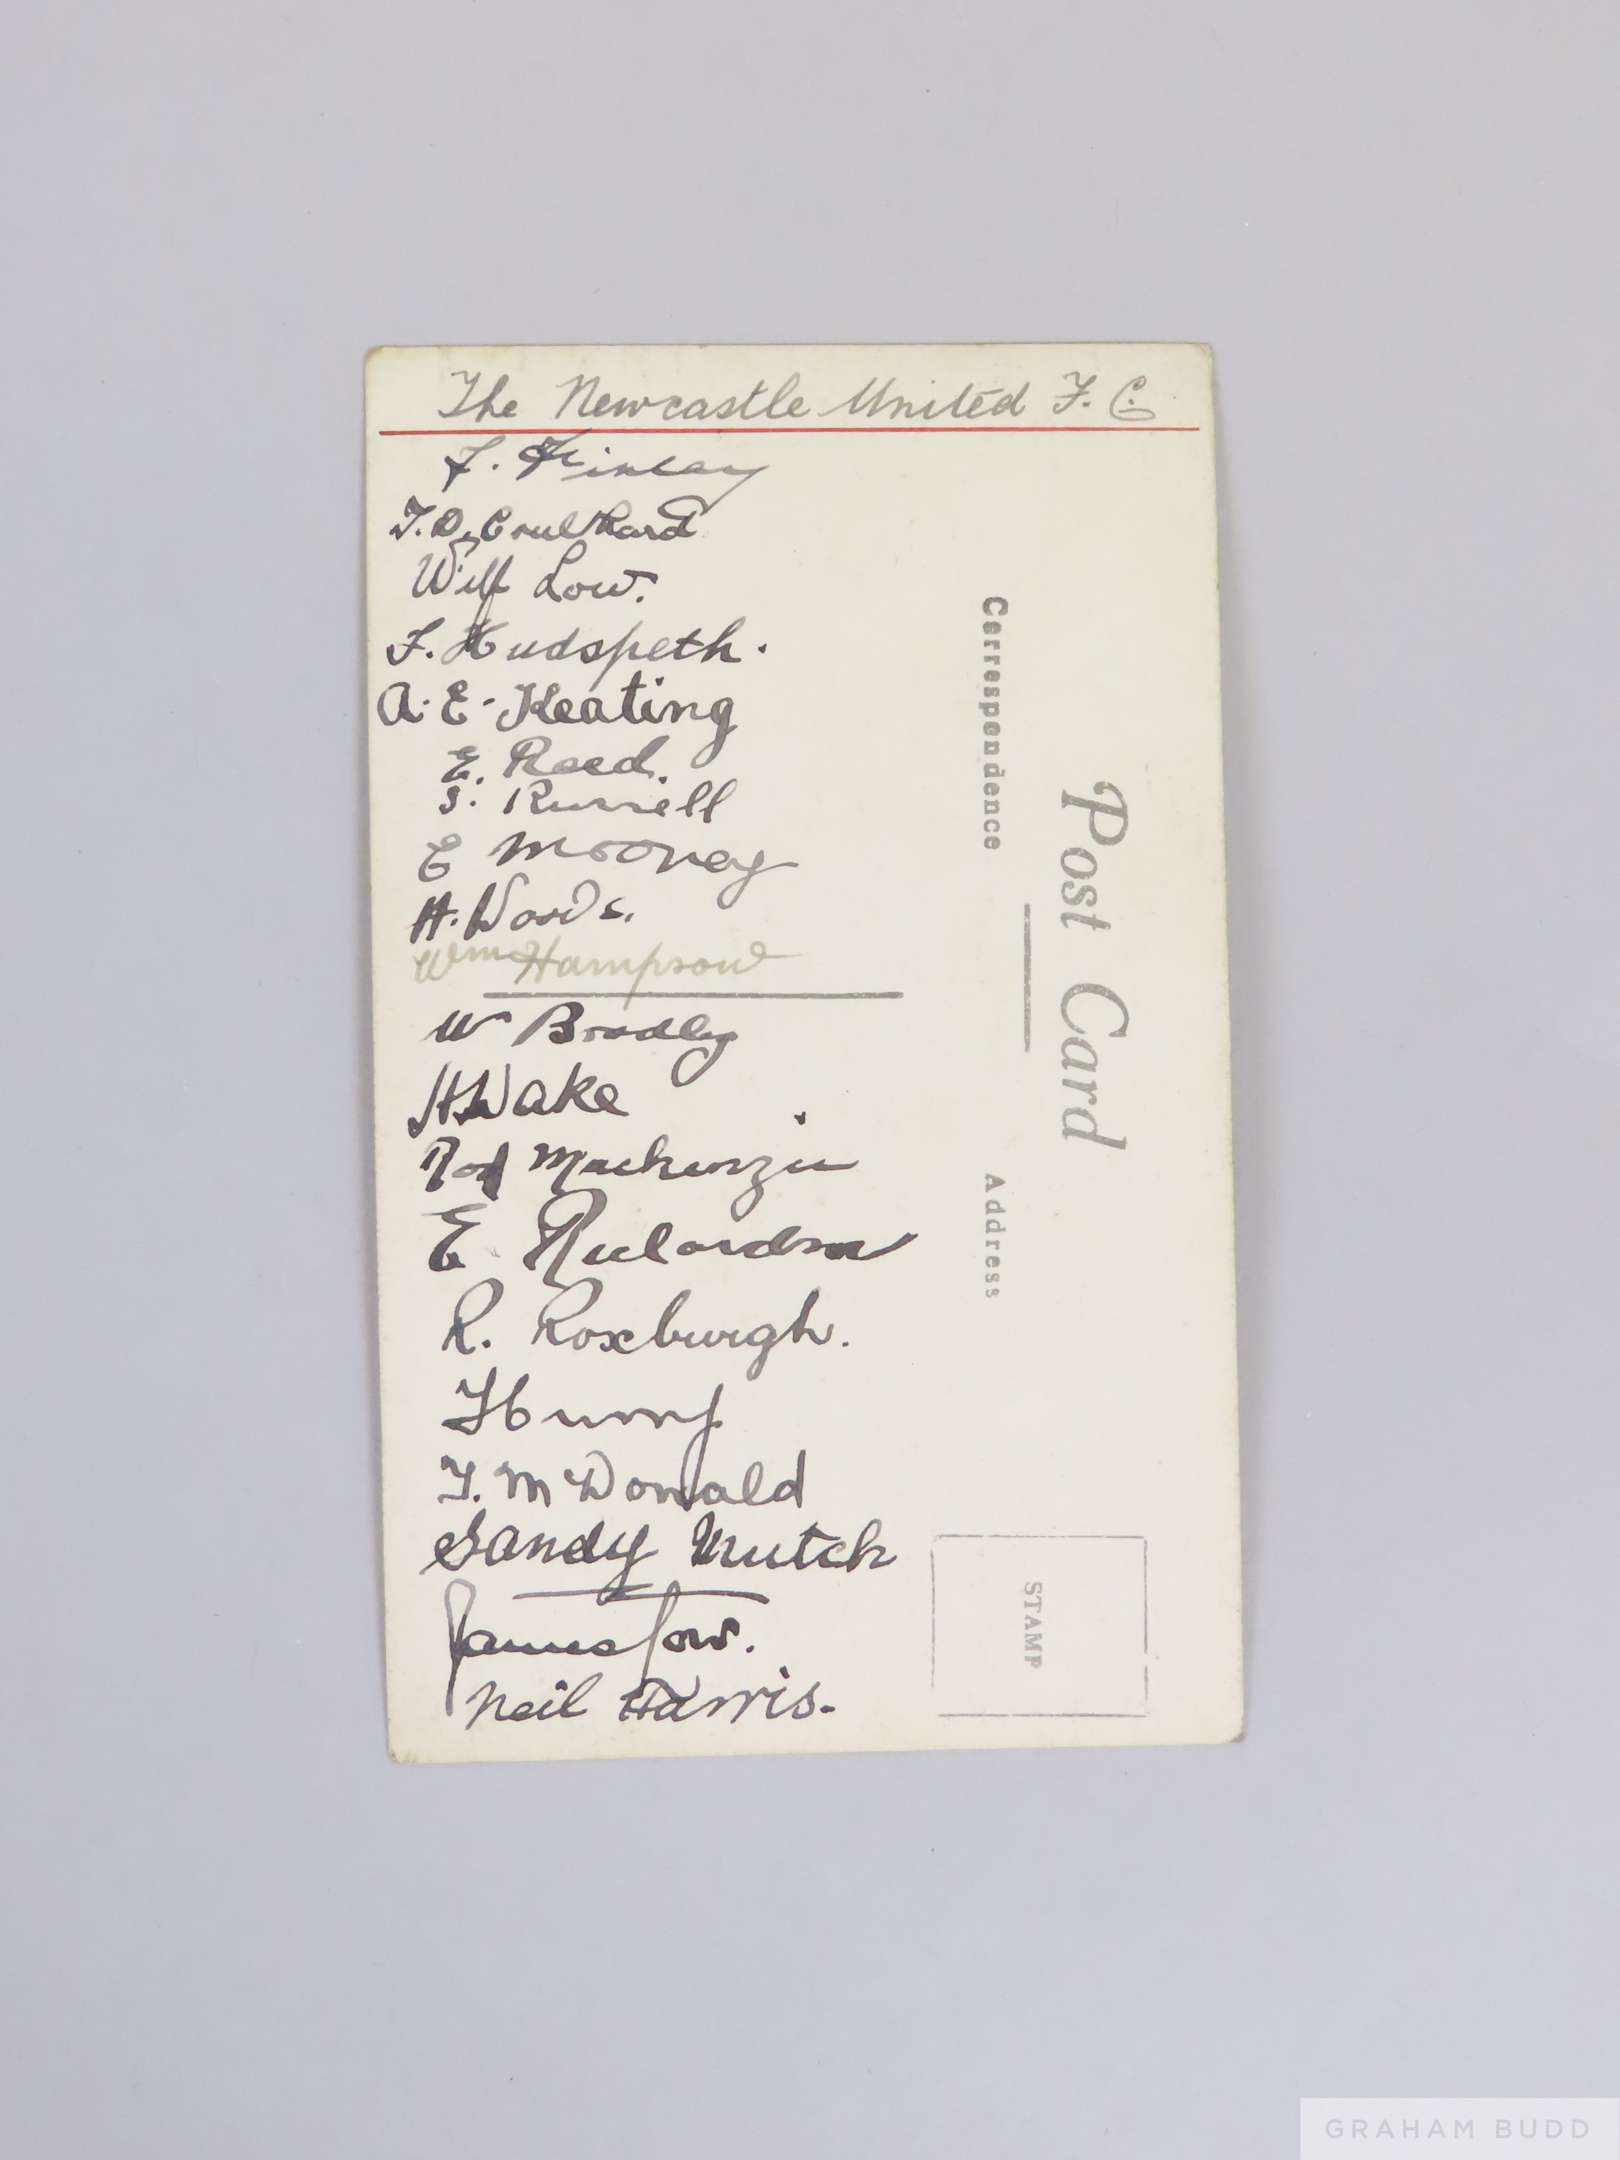 The Newcastle United F. C.
F. Finlay
T. D. Coulthard
Wilf Low.
F. Hudspeth.
A. E. Keating
E. Reed.
S. Russell
E Mooney
H. Woods.
Wm Hampson
W Bradley
H Wake
Rod Mackenzie
E Richardson
R. Roxburgh.
T. McDonald
Sandy Mutch
James Low.
Neil Harris.
Correspondence
Post Card
Address
STAMP
GRAHAM BUDD